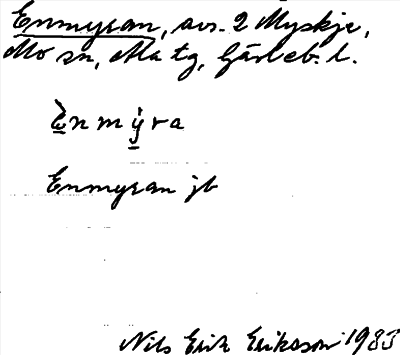 Enmyran, avs. 2 Myskje,
Mo sn, Ma tg, Gävleb. l.
Ènmy̆ra
Enmyran jb
Nils Erik Eriksson 1983